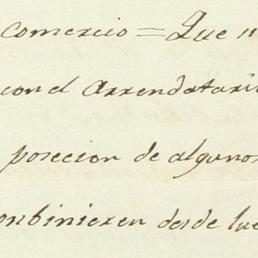 comercio = Que
con el Arrendatari
posecion de algunos
conbinieren desde lue